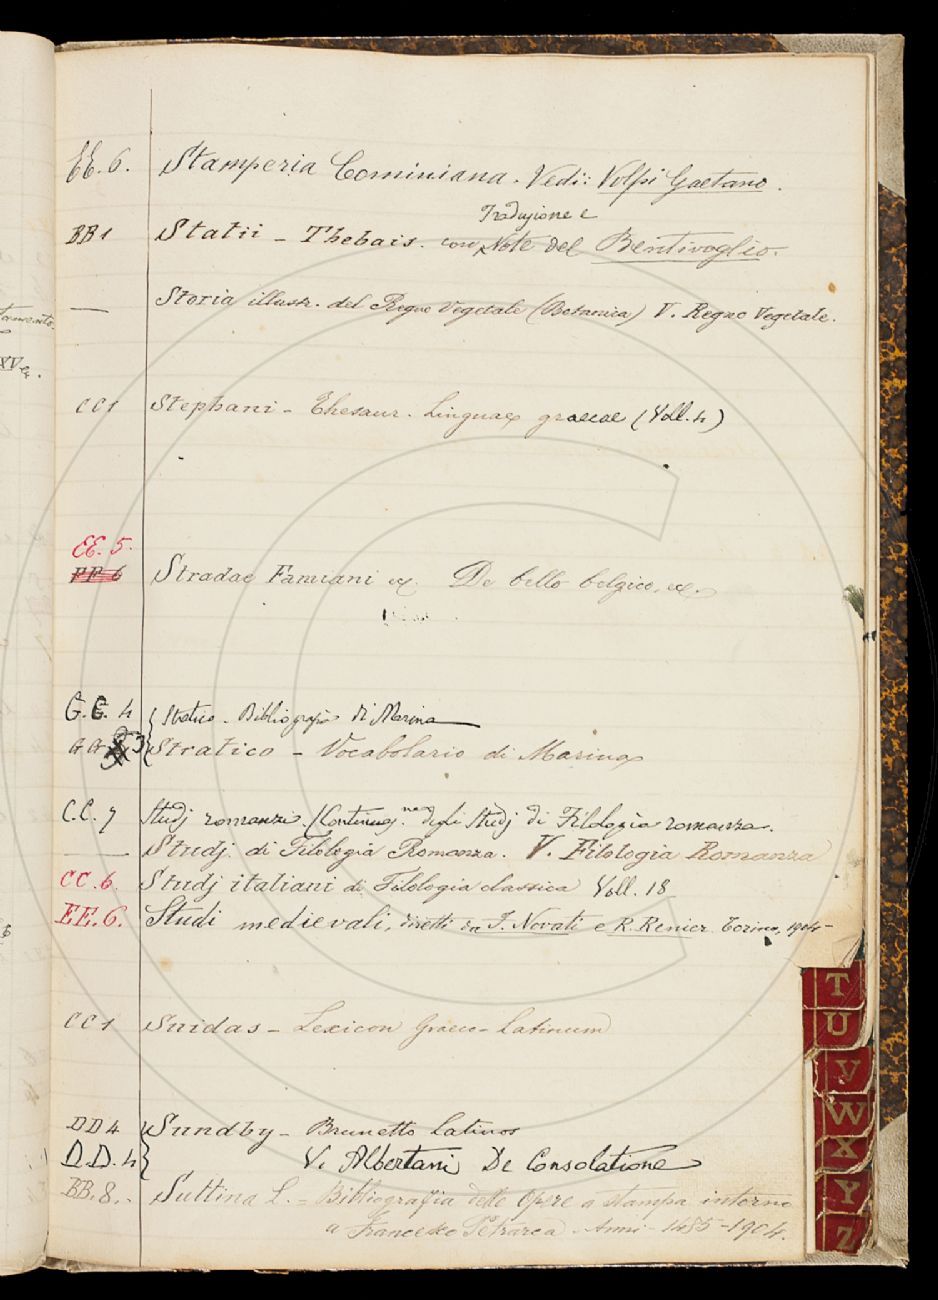 EE. 6. Stamperia Cominiana. Vedi: Volpi Gaetano.
Traduzione e
BB 1 Statii - Thebais. con Note del Bentivoglio.
— Storia illustr. del Regno Vegetale (Botanica) V. Regno Vegetale.
CC 1 Stephani - Thesaur. Linguae graecae (Voll. 4)
EE. 5.
FF 6 Stradae Famiani ec. De bello belgico, ec.
G.G. 4 Stratico - Bibliografia di Marina
GG 3 Stratico - Vocabolario di Marina
C.C. 7 Studj romanzi. (Continuaz.ne degli Studj di Filologia romanza.
— Studj di Filologia Romanza. V. Filologia Romanza
CC. 6. Studj italiani di Filologia classica Voll. 18
EE. 6. Studi medievali, diretti da F. Novati e R. Renier. Torino, 1904-
CC 1 Suidas - Lexicon Graeco-Latinum
DD 4 Sundby - Brunetto Latinos
D.D. 4 V. Albertani De Consolatione
BB. 8. Suttina L. = Bibliografia delle Opere a stampa intorno
a Francesco Petrarca - Anni - 1485-1904.
tamento
XV ec.
T
U
V
W
X
Y
Z